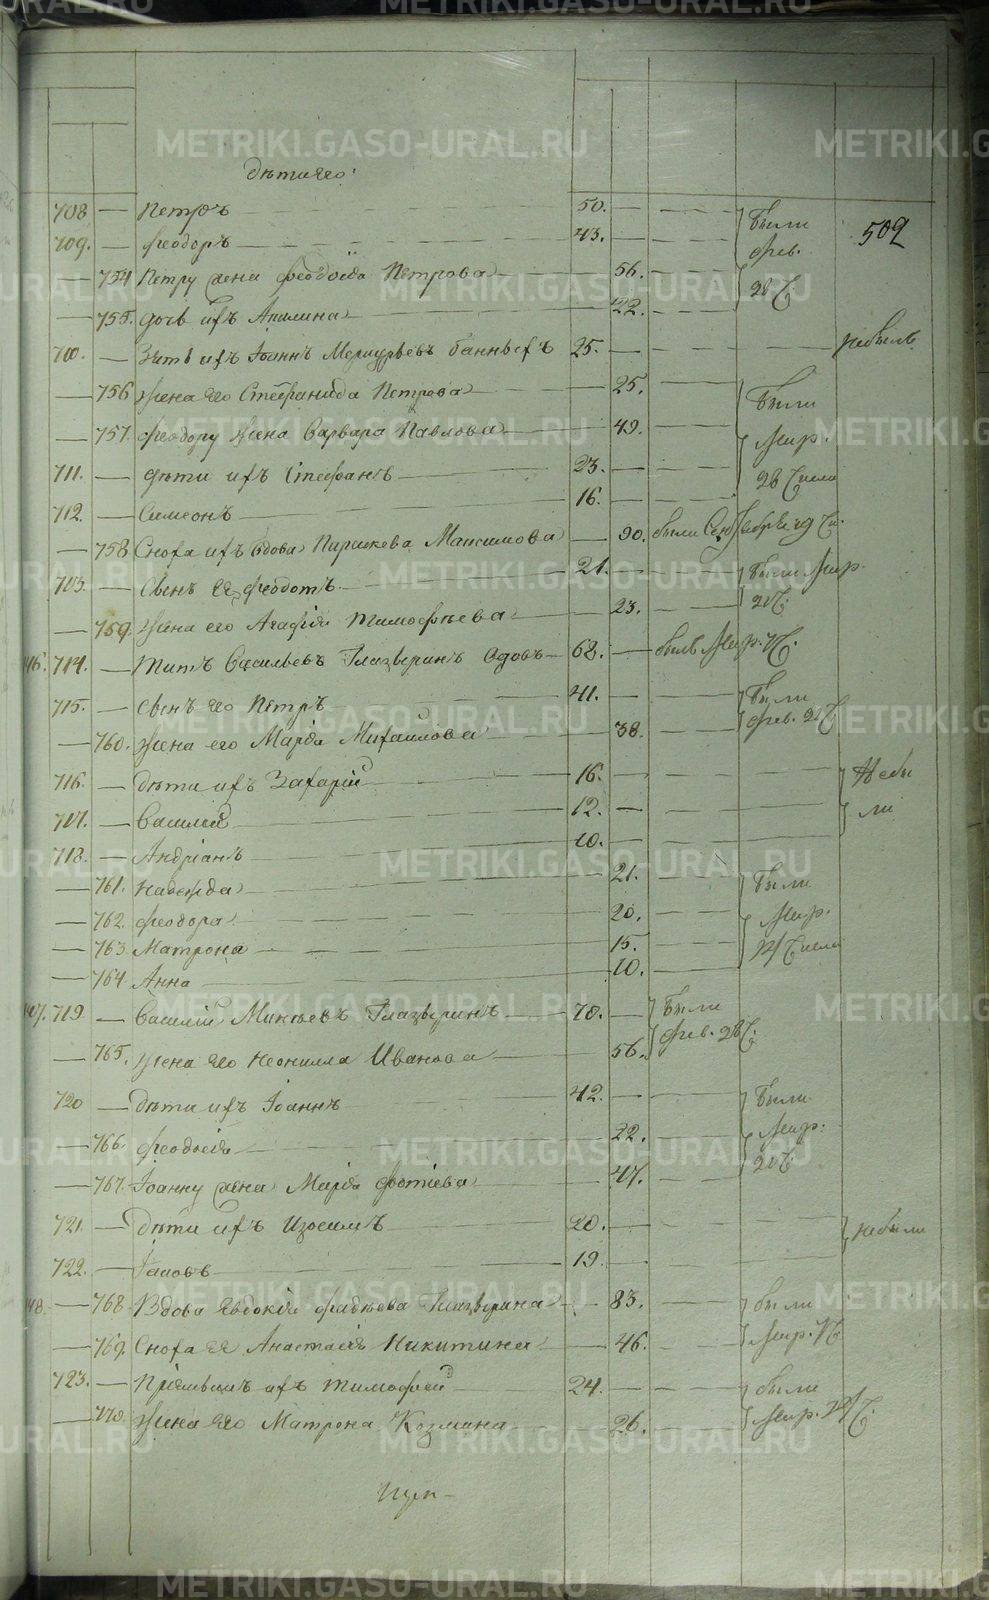 METRIKI.GASO-URAL.RU
509
дѣти его:
708. — Петръ — 50. — — Были
709. — Феодоръ — 43. — — фев.
— 754 Петру жена Феодосіа Петрова — 56.
— 755. дочь ихъ Акилина — 22. —
710. — Зять ихъ Іоаннъ Меркурьевъ 25. — — небылъ
— 756 жена его Стефанида Петрова — 25. — Были
— 757. Феодору жена Варвара Павлова — 49. — Мар.
711. — дѣти ихъ Стефанъ — 23. — 28 Числа
712. — Симеонъ — 16. —
— 758 Сноха ихъ вдова Параскева Максимова — 90. были
713. — Сынъ Ея Феодотъ — 21. — Были Мар.
— 759. жена его Агафіа Тимофѣева — 23. —
146. 714. — Титъ Васильевъ Глазыринъ вдовъ — 62. — былъ Мар.
715. — Сынъ его Петръ — 41. — Были
— 760. жена его Маріа Михайлова — 38. — фев.
716. — Дѣти ихъ Захарій — 16. — Небы
717. — Василій — 12. — ли
718. — Андріанъ — 10. —
— 761. Надежда — 21. — Были
— 762. Феодора — 20. — Мар.
— 763. Матрона — 15. — Числа
— 764. Анна — 10. —
147. 719 — Василій Глазыринъ — 78. — Были
— 765. жена его Неонилла Иванова — 56. фев. 28 Ч.
720 — Дѣти ихъ Іоаннъ — 42. — Были
— 766. Феодосіа — 22. — Мар:
— 767. Іоанну жена Маріа Фотіева — 47. —
721. — Дѣти ихъ Изосимъ — 20. — небыли
722. — Іаковъ — 19. —
148. — 768. Вдова Евдокіа Фадѣева Глазырина — 83. — были
— 769. Сноха ея Анастасіа Никитина — 46. — Мар.
723. — Пріемышъ ихъ Тимофей — 24. — были
— 770. Жена его Матрона Козмина — 26. — Мар.